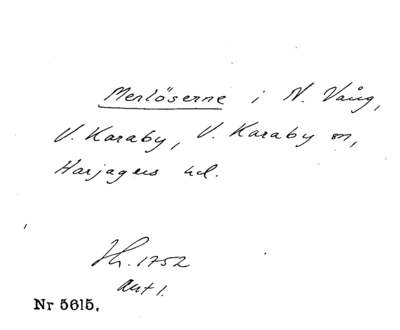 Merlöserne i N. Vång,
V. Karaby, V. Karaby sn,
Harjagers hd.
Jh. 1752
akt 1.
Nr 5615.